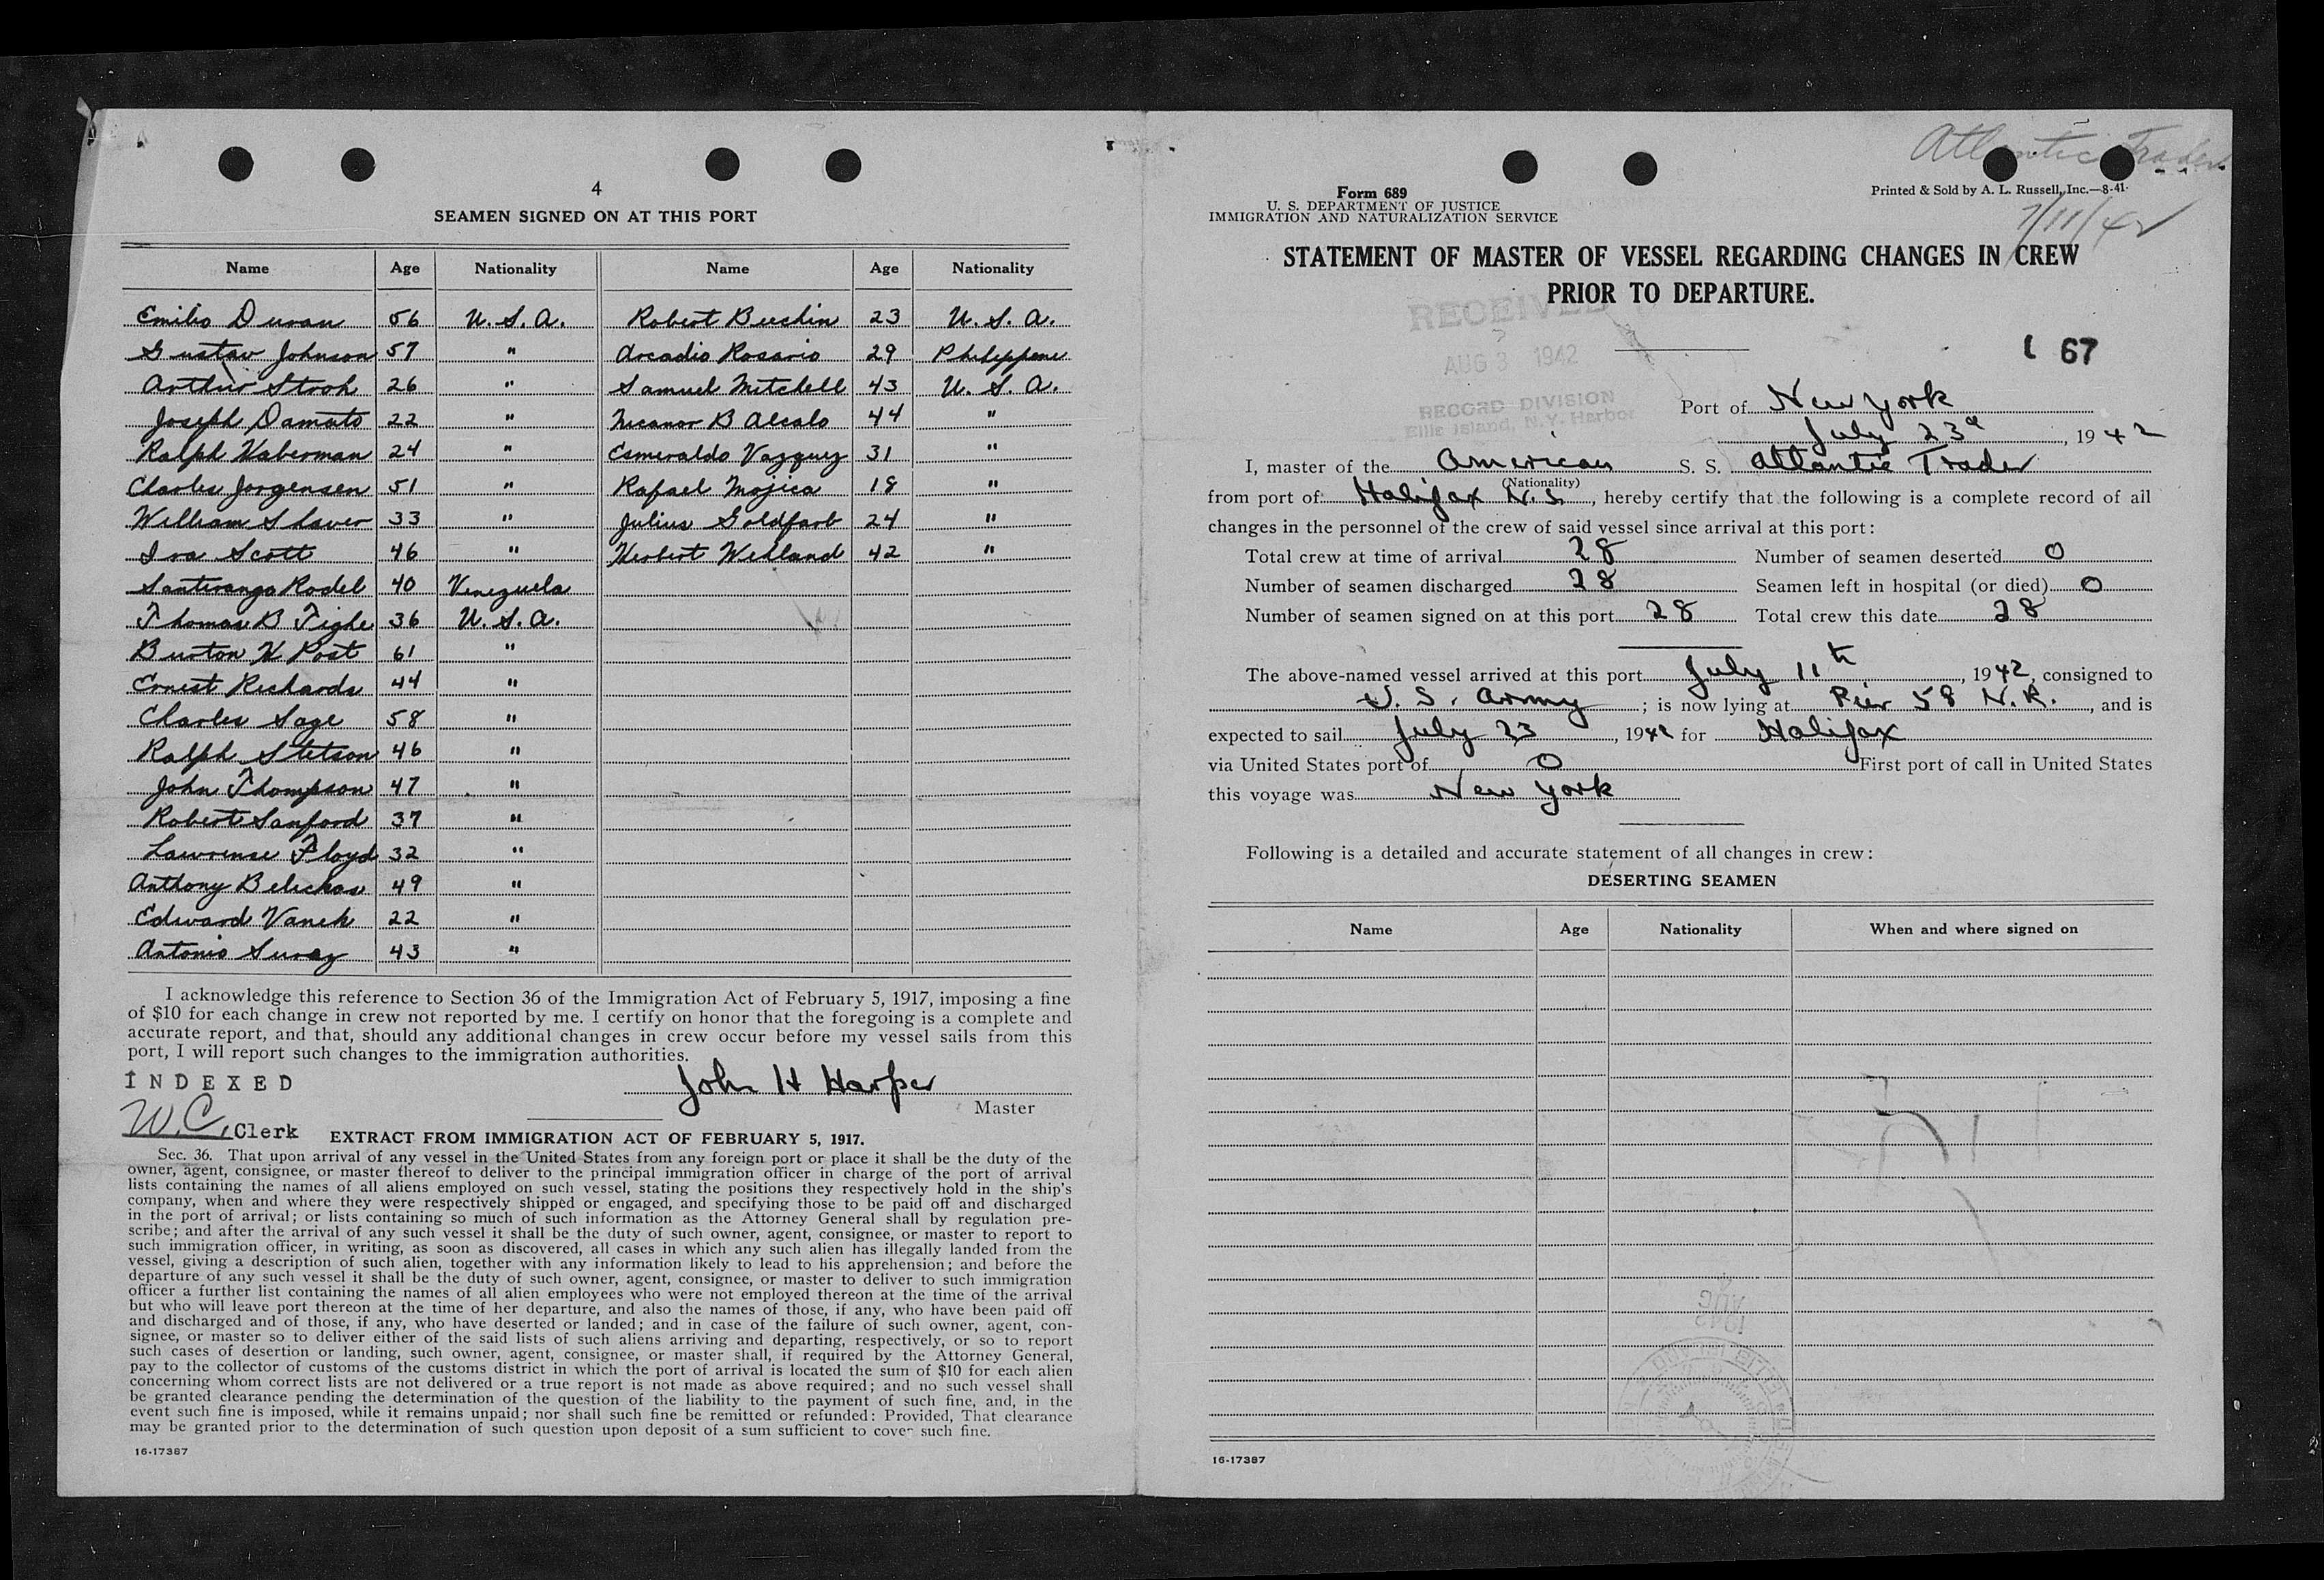 4
SEAMEN SIGNED ON AT THIS PORT
Name Age Nationality Name Age Nationality
Emilio Duran 56 U.S.A. Robert Beechin 23 U.S.A.
Gustav Johnson 57 " Arcadio Rosario 29 Philippene
Arthur Strok 26 " Samuel Mitchell 43 U.S.A.
Joseph Damato 22 " Nicanor B Alcalo 44 "
Ralph Haberman 24 " Esmeraldo Vazquez 31 "
Charles Jorgensen 51 " Rafael Mojica 18 "
William Shaver 33 " Julius Goldfarb 24 "
Ira Scott 46 " Herbert Wehland 42 "
Rodel 40 Venezuela
Thomas B Tighe 36 U.S.A.
Burton H Post 61 "
Ernest Richards 44 "
Charles Sage 58 "
Ralph Stetson 46 "
John Thompson 47 "
Robert Sanford 37 "
Lawrense Floyd 32 "
Anthony Belickas 49 "
Edward Vanek 22 "
Antonio 43 "
I acknowledge this reference to Section 36 of the Immigration Act of February 5, 1917, imposing a fine
of $10 for each change in crew not reported by me. I certify on honor that the foregoing is a complete and
accurate report, and that, should any additional changes in crew occur before my vessel sails from this
port, I will report such changes to the immigration authorities.
INDEXED
John H Harper
Master
W.C. Clerk
EXTRACT FROM IMMIGRATION ACT OF FEBRUARY 5, 1917.
Sec. 36. That upon arrival of any vessel in the United States from any foreign port or place it shall be the duty of the
owner, agent, consignee, or master thereof to deliver to the principal immigration officer in charge of the port of arrival
lists containing the names of all aliens employed on such vessel, stating the positions they respectively hold in the ship's
company, when and where they were respectively shipped or engaged, and specifying those to be paid off and discharged
in the port of arrival; or lists containing so much of such information as the Attorney General shall by regulation pre-
scribe; and after the arrival of any such vessel it shall be the duty of such owner, agent, consignee, or master to report to
such immigration officer, in writing, as soon as discovered, all cases in which any such alien has illegally landed from the
vessel, giving a description of such alien, together with any information likely to lead to his apprehension; and before the
departure of any such vessel it shall be the duty of such owner, agent, consignee, or master to deliver to such immigration
officer a further list containing the names of all alien employees who were not employed thereon at the time of the arrival
but who will leave port thereon at the time of her departure, and also the names of those, if any, who have been paid off
and discharged and of those, if any, who have deserted or landed; and in case of the failure of such owner, agent, con-
signee, or master so to deliver either of the said lists of such aliens arriving and departing, respectively, or so to report
such cases of desertion or landing, such owner, agent, consignee, or master shall, if required by the Attorney General,
pay to the collector of customs of the customs district in which the port of arrival is located the sum of $10 for each alien
concerning whom correct lists are not delivered or a true report is not made as above required; and no such vessel shall
be granted clearance pending the determination of the question of the liability to the payment of such fine, and, in the
event such fine is imposed, while it remains unpaid; nor shall such fine be remitted or refunded: Provided, That clearance
may be granted prior to the determination of such question upon deposit of a sum sufficient to cover such fine.
16-17387
Atlantic Trader
Form 689
U. S. DEPARTMENT OF JUSTICE
IMMIGRATION AND NATURALIZATION SERVICE
Printed & Sold by A. L. Russell, Inc.—8-41
7/11/42
STATEMENT OF MASTER OF VESSEL REGARDING CHANGES IN CREW
PRIOR TO DEPARTURE.
RECEIVED
AUG 3 1942
RECORD DIVISION
Ellis Island, N.Y. Harbor
67
Port of New York
July 23d, 1942
I, master of the American S. S. Atlantic Trader
(Nationality)
from port of Halifax N.S., hereby certify that the following is a complete record of all
changes in the personnel of the crew of said vessel since arrival at this port:
Total crew at time of arrival 28 Number of seamen deserted 0
Number of seamen discharged 28 Seamen left in hospital (or died) 0
Number of seamen signed on at this port 28 Total crew this date 28
The above-named vessel arrived at this port July 11th, 1942, consigned to
U.S. Army; is now lying at Pier 58 N.R., and is
expected to sail July 23, 1942 for Halifax
via United States port of 0 First port of call in United States
this voyage was New York
Following is a detailed and accurate statement of all changes in crew:
DESERTING SEAMEN
Name Age Nationality When and where signed on
AUG
1942
16-17387